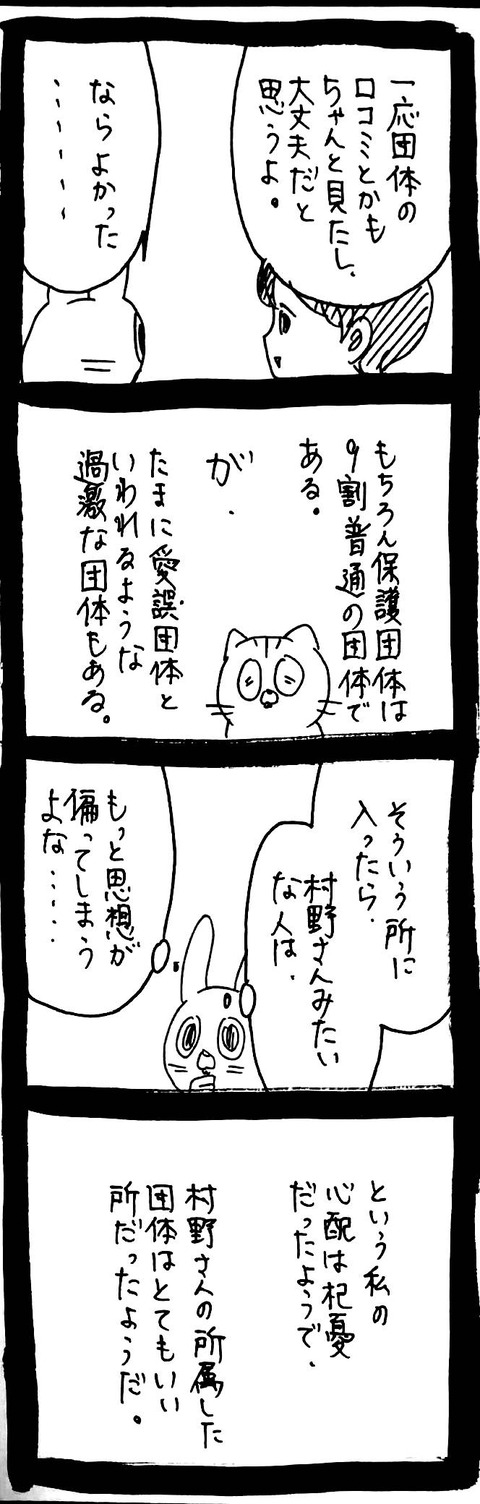 一応団体の
口コミとかも
ちゃんと見たし、
大丈夫だと
思うよ。
ならよかった
・・・・・・
もちろん保護団体は
9割普通の団体で
ある。
が、
たまに愛誤団体と
いわれるような
過激な団体もある。
そういう所に
入ったら、
村野さんみたい
な人は、
もっと思想が
偏ってしまう
よな・・・・・
という私の
心配は杞憂
だったようで、
村野さんの所属した
団体はとてもいい
所だったようだ。